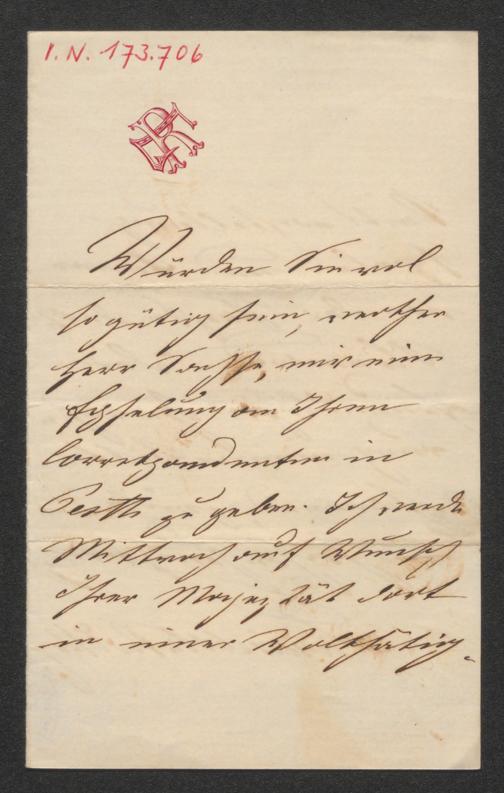 I. N. 173.706
Würden Sie wol
so gütig sein, werther
Herr Sachse, mir eine
Empfelung an Ihren
Correspondenten in
Pesth zu geben. Ich werde
Mittwoch auf Wunsch
Ihrer Majestät dort
in einer Wolthätig-